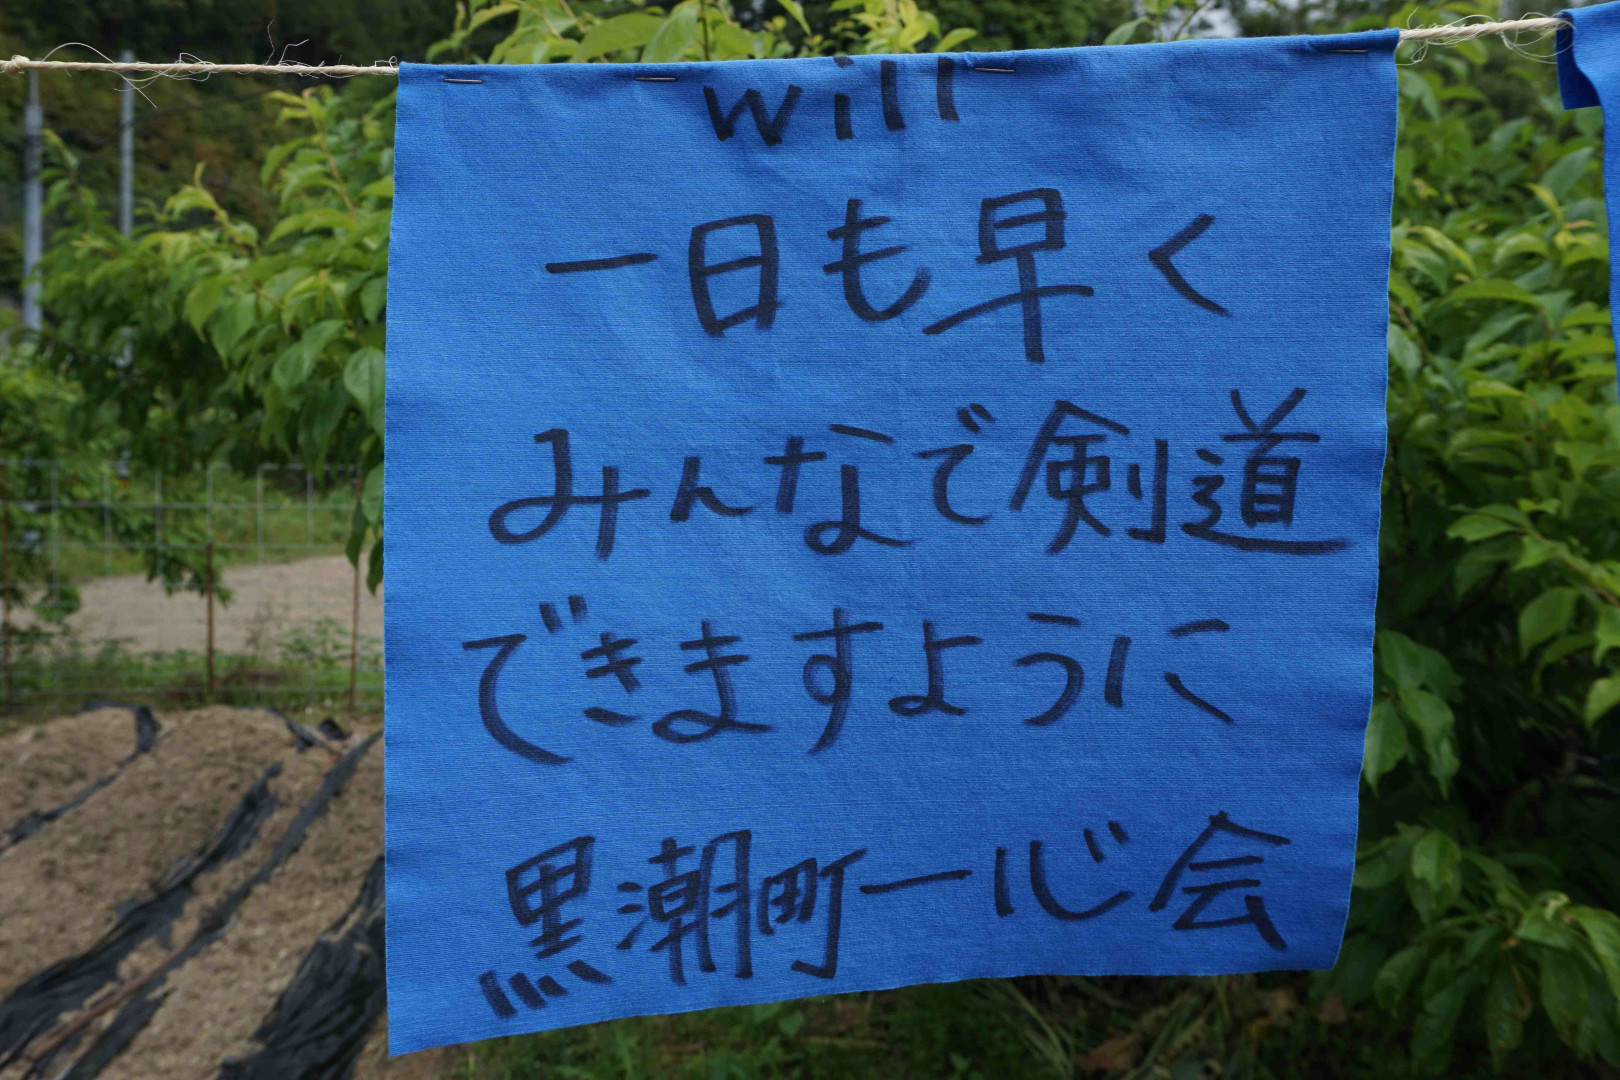 will
一日も早く
みんなで剣道
できますように
黒潮町一心会